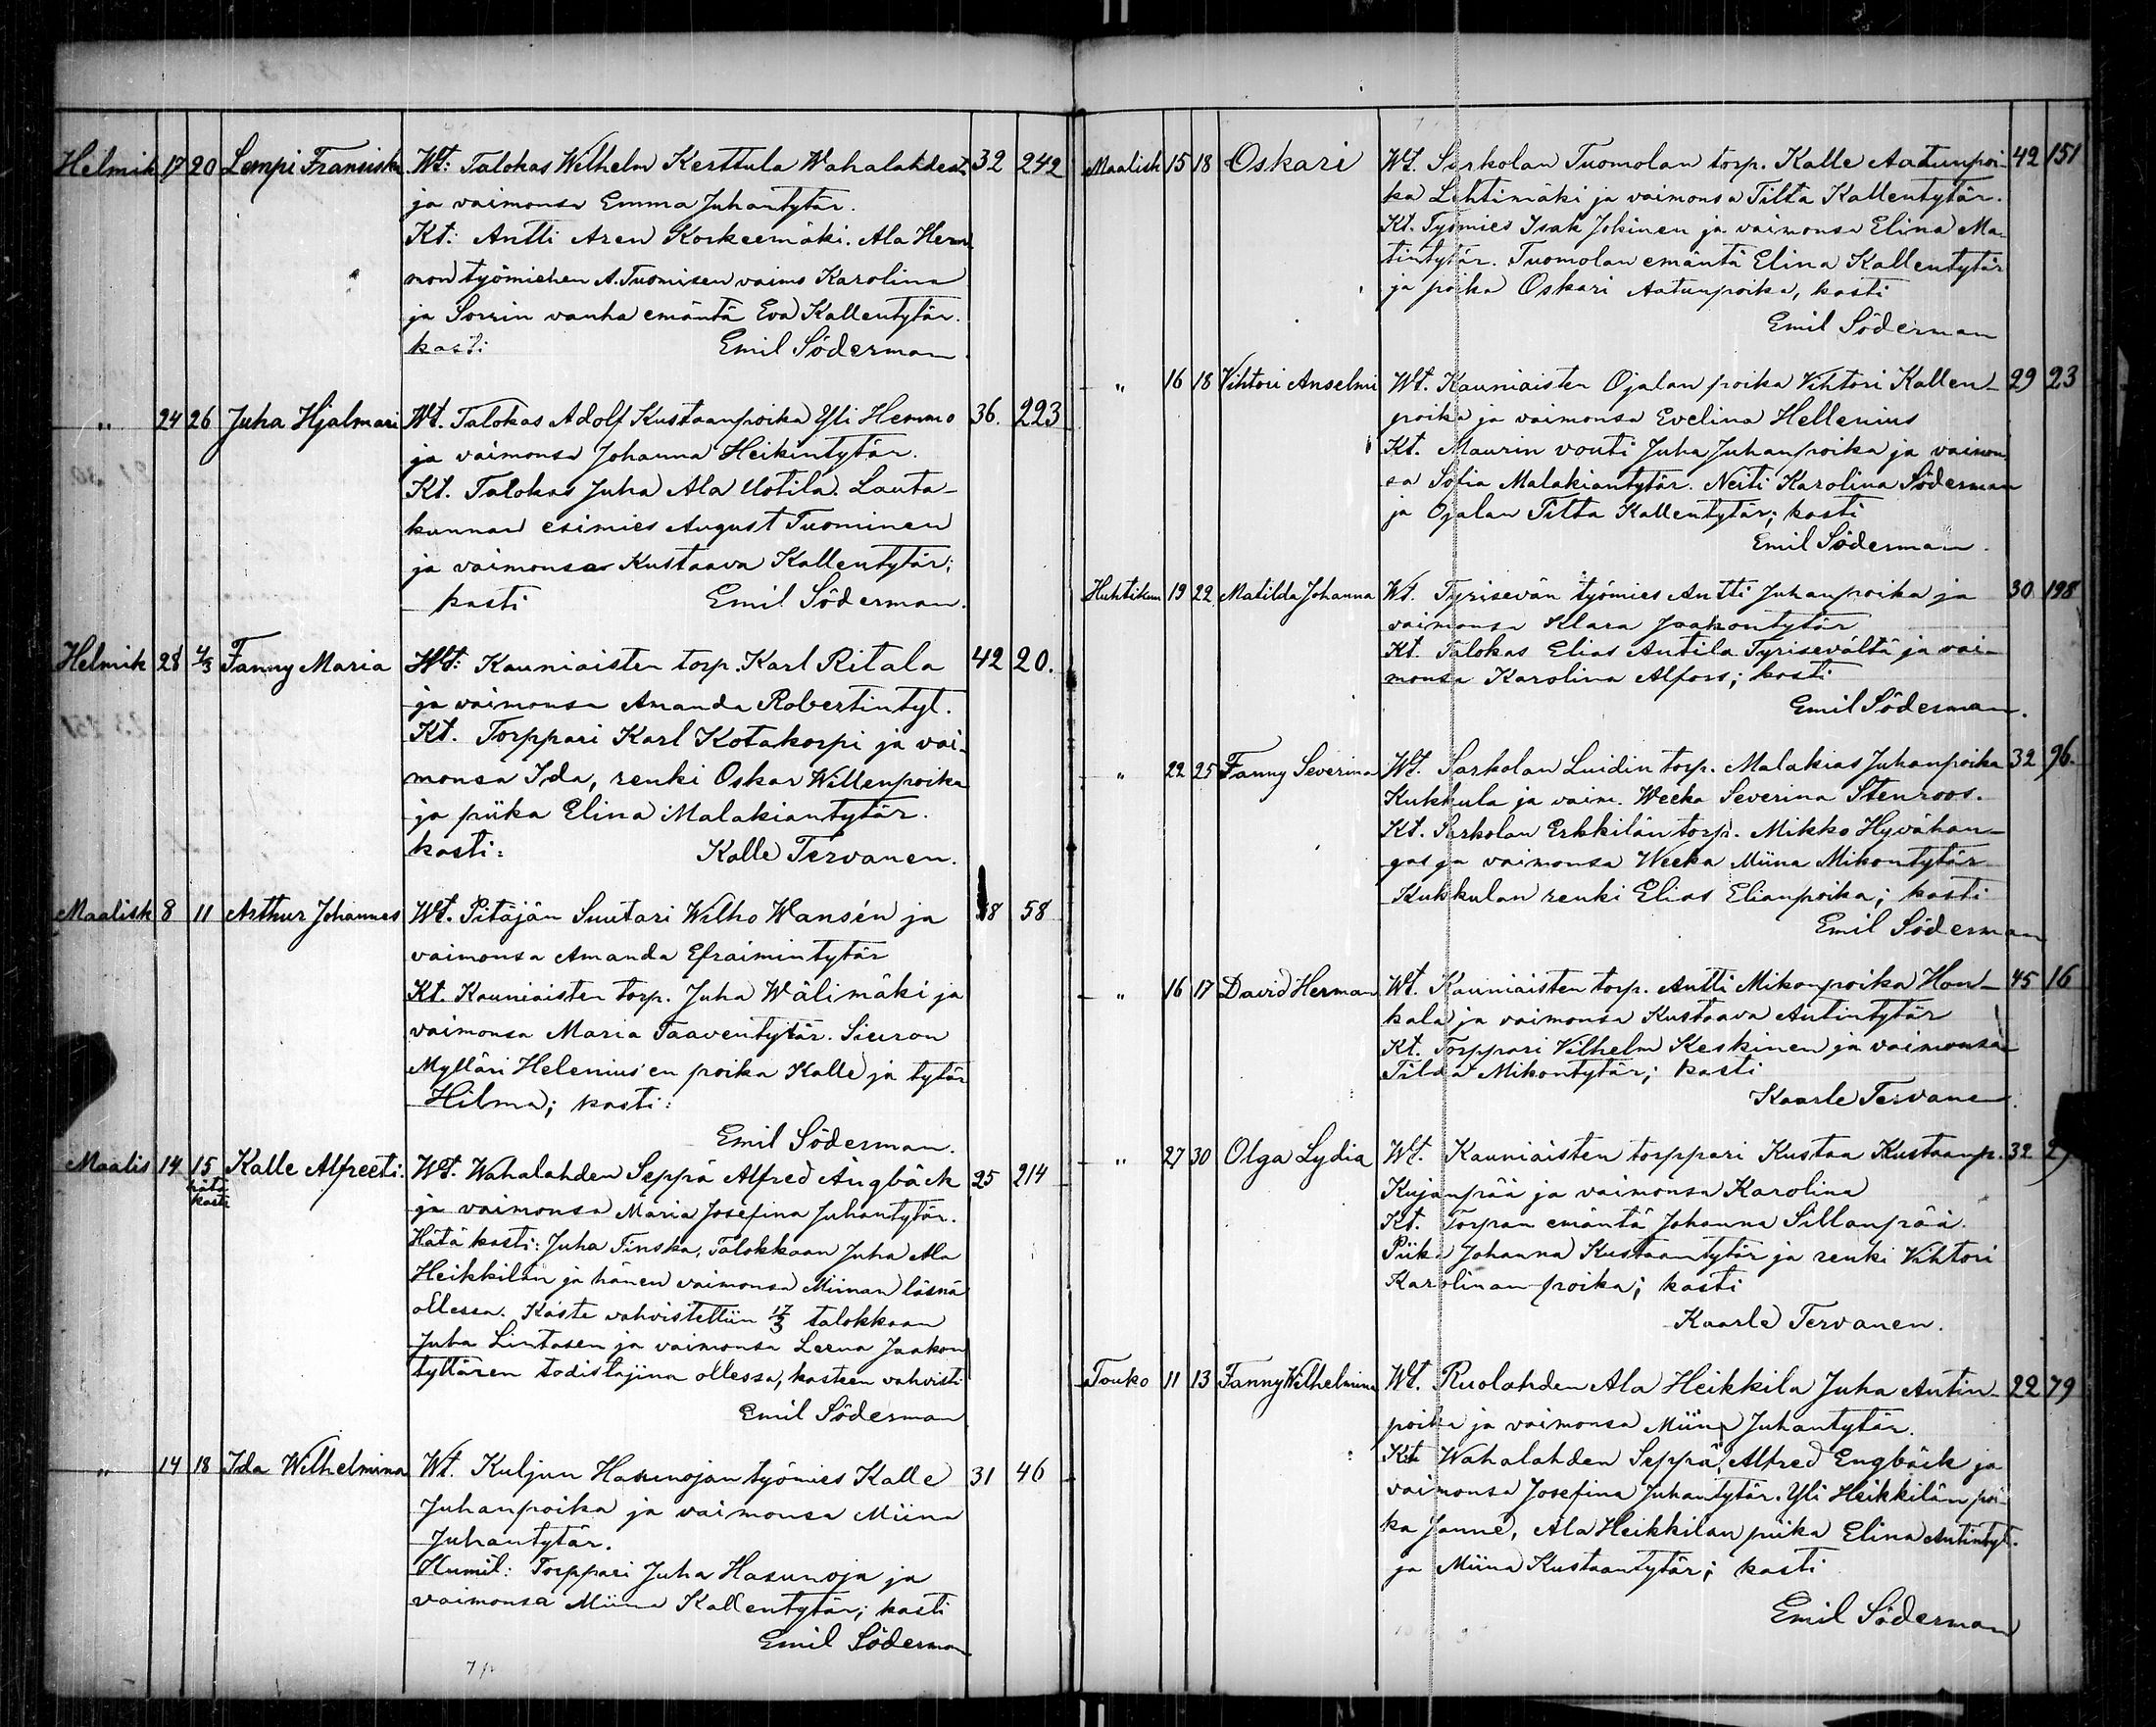 Helmik 17 20 Lempi Fransiska Wt: Talokas Wilhelm Kerttula Wahalahdest. 32 242
ja vaimonsa Emma Juhantytär.
Kt: Antti Aren Korkeemäki. Ala Hem-
mon työmiehen A. Tuomisen vaimo Karolina
ja Sorrin vanha emäntä Eva Kallentytär.
kasti Emil Söderman
" 24 26 Juha Hjalmari Wt. Talokas Adolf Kustaanpoika Yli Hemmo 36. 223
ja vaimonsa Johanna Heikintytär.
Kt. Talokas Juha Ala Uotila. Lauta-
kunnan esimies August Tuominen
ja vaimonsa Kustaava Kallentytär;
kasti Emil Söderman.
Helmik 28 4/3 Fanny Maria Wt: Kauniaisten torp. Karl Ritala 42 20.
ja vaimonsa Amanda Robertintyt.
Kt. Torppari Karl Kotakorpi ja vai-
monsa Ida, renki Oskar Willenpoika
ja piika Elina Malakiantytär.
kasti: Kalle Tervanen.
Maalisk 8 11 Arthur Johannes Wt. Pitäjän Suutari Wilho Wansén ja 38 58
vaimonsa Amanda Efraimintytär
Kt. Kauniaisten torp. Juha Wälimäki ja
vaimonsa Maria Taaventytär. Siuron
Mylläri Helenius'en poika Kalle ja tytär
Hilma; kasti:
Emil Söderman.
Maalis 14 15 Kalle Alfreeti: Wt. Wahalahden Seppä Alfred Ängbäck 25 214
hätä
kaste
ja vaimonsa Maria Josefina Juhantytär.
Hätä kasti: Juha Finska, Talokkaan Juha Ala
Heikkilän ja hänen vaimonsa Miinan läsnä
ollessa. Kaste vahvistettiin 17/3 talokkaan
Juha Lintasen ja vaimonsa Leena Jaakon
tyttären todistajina ollessa, kasteen vahvisti
Emil Söderman
" 14 18 Ida Wilhelmina Wt. Kuljun Hasunojan työmies Kalle 31 46
Juhanpoika ja vaimonsa Miina
Juhantytär.
Kumit: Torppari Juha Hasunoja ja
vaimonsa Miina Kallentytär; kasti
Emil Söderman
Maalisk 15 18 Oskari Wt. Sarkolan Tuomolan torp. Kalle Aatunpoi- 42 151
ka Lehtimäki ja vaimonsa Tilta Kallentytär.
Kt. Työmies Isak Jokinen ja vaimonsa Elina Ma-
tintytär. Tuomolan emäntä Elina Kallentytär
ja poika Oskari Aatunpoika, kasti
Emil Söderman
" 16 18 Vihtori Anselmi Wt. Kauniaisten Ojalan poika Vihtori Kallen- 29 23
poika ja vaimonsa Evelina Hellenius
Kt. Maurin vouti Juha Juhanpoika ja vaimon
sa Sofia Malakiantytär. Neiti Karolina Söderman
ja Ojalan Tilta Kallentytär; kasti
Emil Söderman.
Huhtikuu 19 22 Matilda Johanna Wt. Tyrisevän työmies Antti Juhanpoika ja 30 198
vaimonsa Klara Jaakontytär
Kt. Talokas Elias Antila Tyrisevältä ja vai-
monsa Karolina Alfors; kasti
Emil Söderman.
" 22 25 Fanny Severina Wt. Sarkolan Luidin torp. Malakias Juhanpoika 32 96.
Kukkula ja vaim. Weeka Severina Stenroos.
Kt. Sarkolan Erkkilän torp. Mikko Hyvähan-
gas ja vaimonsa Weeka Miina Mikontytär
Kukkulan renki Elias Elianpoika; kasti
Emil Söderman
" 16 17 David Herman Wt. Kauniaisten torp. Antti Mikonpoika Hon- 45 16
kala ja vaimonsa Kustaava Antintytär
Kt. Torppari Vilhelm Keskinen ja vaimonsa
Tilda Mikontytär; kasti
Kaarle Tervane
" 27 30 Olga Lydia Wt. Kauniaisten torppari Kustaa Kustaanp. 32
Kujanpää ja vaimonsa Karolina
Kt. Torpan emäntä Johanna Sillanpää.
Piika Johanna Kustaantytär ja renki Vihtori
Karolinanpoika; kasti
Kaarle Tervanen.
Touko 11 13 Fanny Wilhelmina Wt. Ruolahden Ala Heikkila Juha Antin- 22 79
poika ja vaimonsa Miina Juhantytär.
Kt Wahalahden Seppä Alfred Engbäck ja
vaimonsa Josefina Juhantytär. Yli Heikkilän poi-
ka Janne, Ala Heikkilan piika Elina Antintyt.
ja Miina Kustaantytär; kasti
Emil Söderman